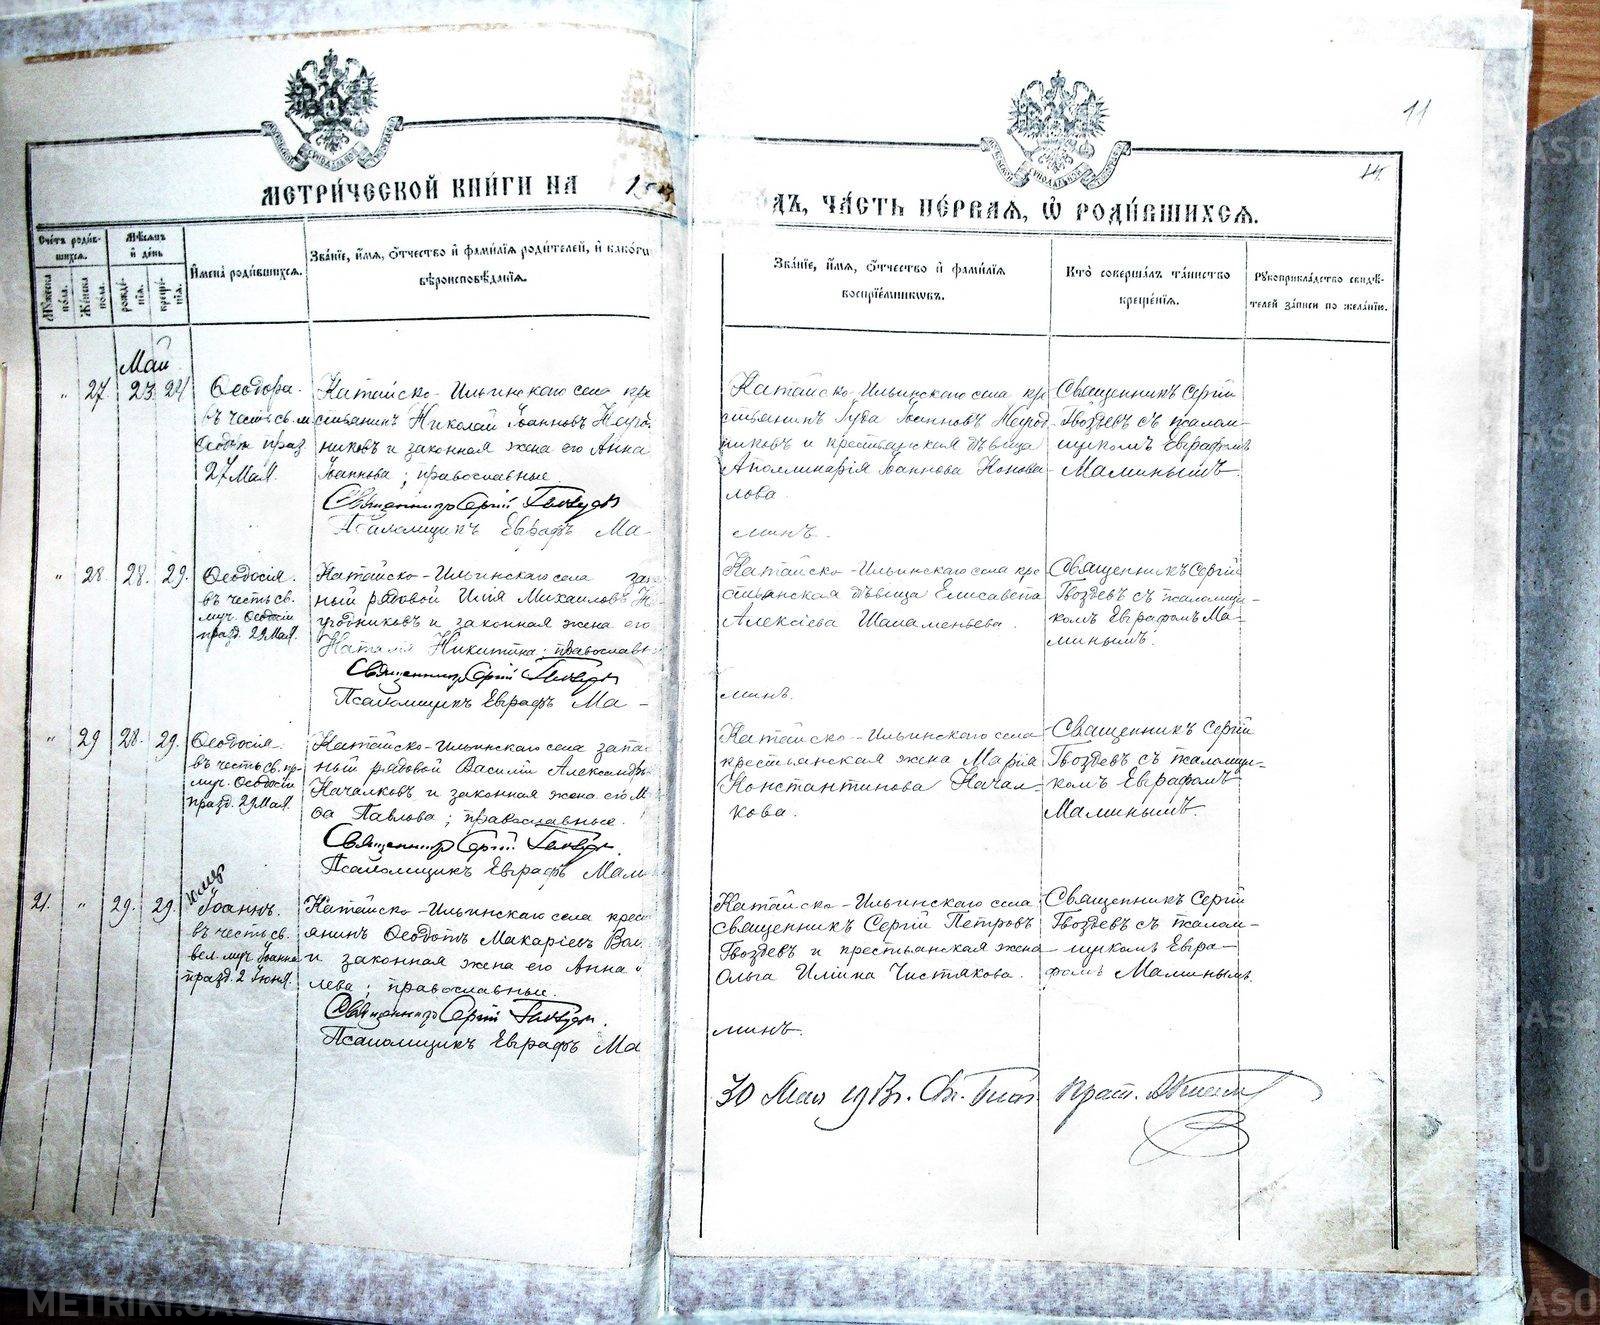 11
14.
МЕТРИ́ЧЕСКОЙ КНИ́ГИ НА 1913
ДЪ, ЧА́СТЬ ПЕ́РВАЯ, Ѡ҆ РОДИ́ВШИХСЯ.
Сче́тъ роди́вшихся.
Му́жеска по́ла.
Же́нска по́ла.
Мѣ́сяцъ и҆ де́нь
рожде́нія.
креще́нія.
И҆мена̀ роди́вшихся.
Зва́ніе, и҆́мя, ѻ҆́тчество и҆ фами́лія роди́телей, и҆ како́гѡ
вѣроисповѣ́данія.
Зва́ніе, и҆́мя, ѻ҆́тчество и҆ фами́лія
воспріе́мниковъ.
Кто̀ соверша́лъ та́инство
креще́нія.
Рꙋкоприкла́дство свидѣ́-
телей за́писи по жела́нію.
Май
" 27 23 24
Ѳеодора.
въ честь св. м
Ѳеодот. праз
27 Мая.
Катайско-Ильинскаго села кре
стьянинъ Николай Іоанновъ Негод
никовъ и законная жена его Анна
Іоаннова; православные.
Священникъ Сергій Гвоздевъ
Псаломщикъ Евграфъ Ма-
Катайско-Ильинскаго села кре
стьянинъ Іуда Іоанновъ Негод
никовъ и крестьянская дѣвица
Аполлинарія Іоаннова Конова-
лова.
минъ.
Священникъ Сергій
Гвоздевъ съ псалом-
щикомъ Евграфомъ
Маминымъ.
" 28. 28. 29.
Ѳеодосія.
въ честь св.
муч. Ѳеодосіи
празд. 29 Мая.
Катайско-Ильинскаго села запас
ный рядовой Илія Михаиловъ Не
угодниковъ и законная жена его
Наталія Никитина; православн
Священникъ Сергій Гвоздевъ
Псаломщикъ Евграфъ Ма-
Катайско-Ильинскаго села кре
стьянская дѣвица Елисавета
Алексіева Шаламеньева.
минъ.
Священникъ Сергій
Гвоздевъ съ псаломщи-
комъ Евграфомъ Ма-
минымъ.
" 29 28. 29.
Ѳеодосія.
въ честь св. пр.
муч. Ѳеодосіи
празд. 29 Мая.
Катайско-Ильинскаго села запа
ный рядовой Василій Александр
Качалковъ и законная жена его М
Павлова; православные.
Священникъ Сергій Гвоздевъ.
Псаломщикъ Евграфъ Мам
Катайско-Ильинскаго села
крестьянская жена Марія
Константинова Качал-
кова.
Священникъ Сергій
Гвоздевъ съ псаломщи-
комъ Евграфомъ
Маминымъ.
21. " 29. 29.
Іоаннъ.
въ честь св.
вел. муч. Іоанна
празд. 2 Іюня.
Катайско-Ильинскаго села крес
янинъ Ѳеодотъ Макаріевъ
и законная жена его Анна
лева; православные.
Священникъ Сергій Гвоздевъ.
Псаломщикъ Евграфъ Ма
Катайско-Ильинскаго села
священникъ Сергій Петровъ
Гвоздевъ и крестьянская жена
Ольга Иліина Чистякова.
минъ.
Священникъ Сергій
Гвоздевъ съ псалом-
щикомъ Евгра-
фомъ Маминымъ.
30 Мая 1913 г.
METRIKI.GASO